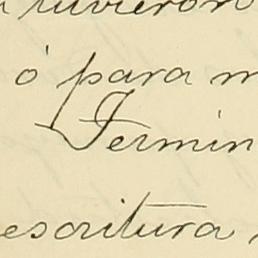 tuvieron
ó para
Termin
escritura